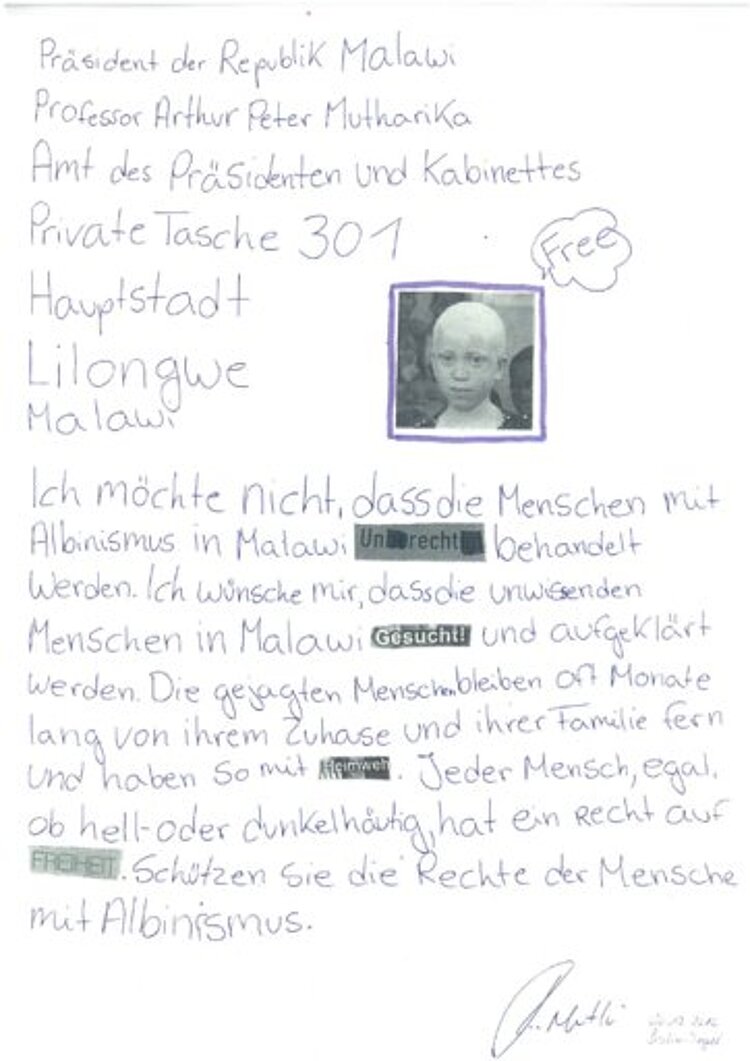 Präsident der Republik Malawi
Professor Arthur Peter Mutharika
Amt des Präsidenten und Kabinettes
Private Tasche 301
Free
Hauptstadt
Lilongwe
Malawi
Ich möchte nicht, dass die Menschen mit
Albinismus in Malawi Unrecht behandelt
werden. Ich wünsche mir, dass die unwissenden
Menschen in Malawi Gesucht! und aufgeklärt
werden. Die gejagten Menschen bleiben oft Monate
lang von ihrem Zuhase und ihrer Familie fern
und haben somit Heimweh. Jeder Mensch, egal,
ob hell- oder dunkelhäutig, hat ein Recht auf
FREIHEIT. Schützen Sie die Rechte der Mensche
mit Albinismus.